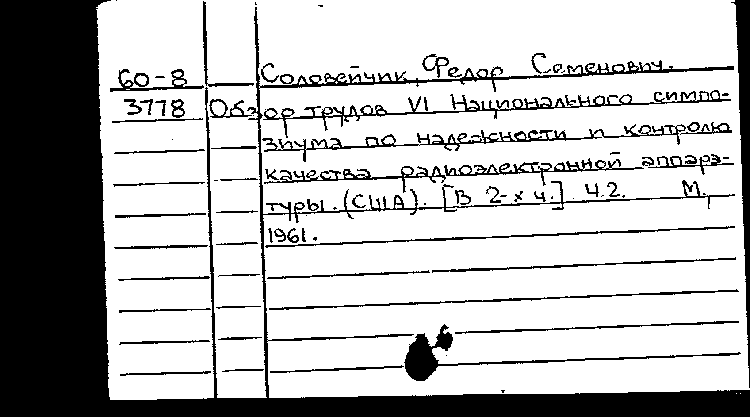 60-8 Соловейчик, Федор Семенович.
3778 Обзор трудов VI Национального симпо-
зиума по надежности и контролю
качества радиоэлектронной аппара-
туры. (США). [В 2-х ч.] Ч.2. М.,
1961.